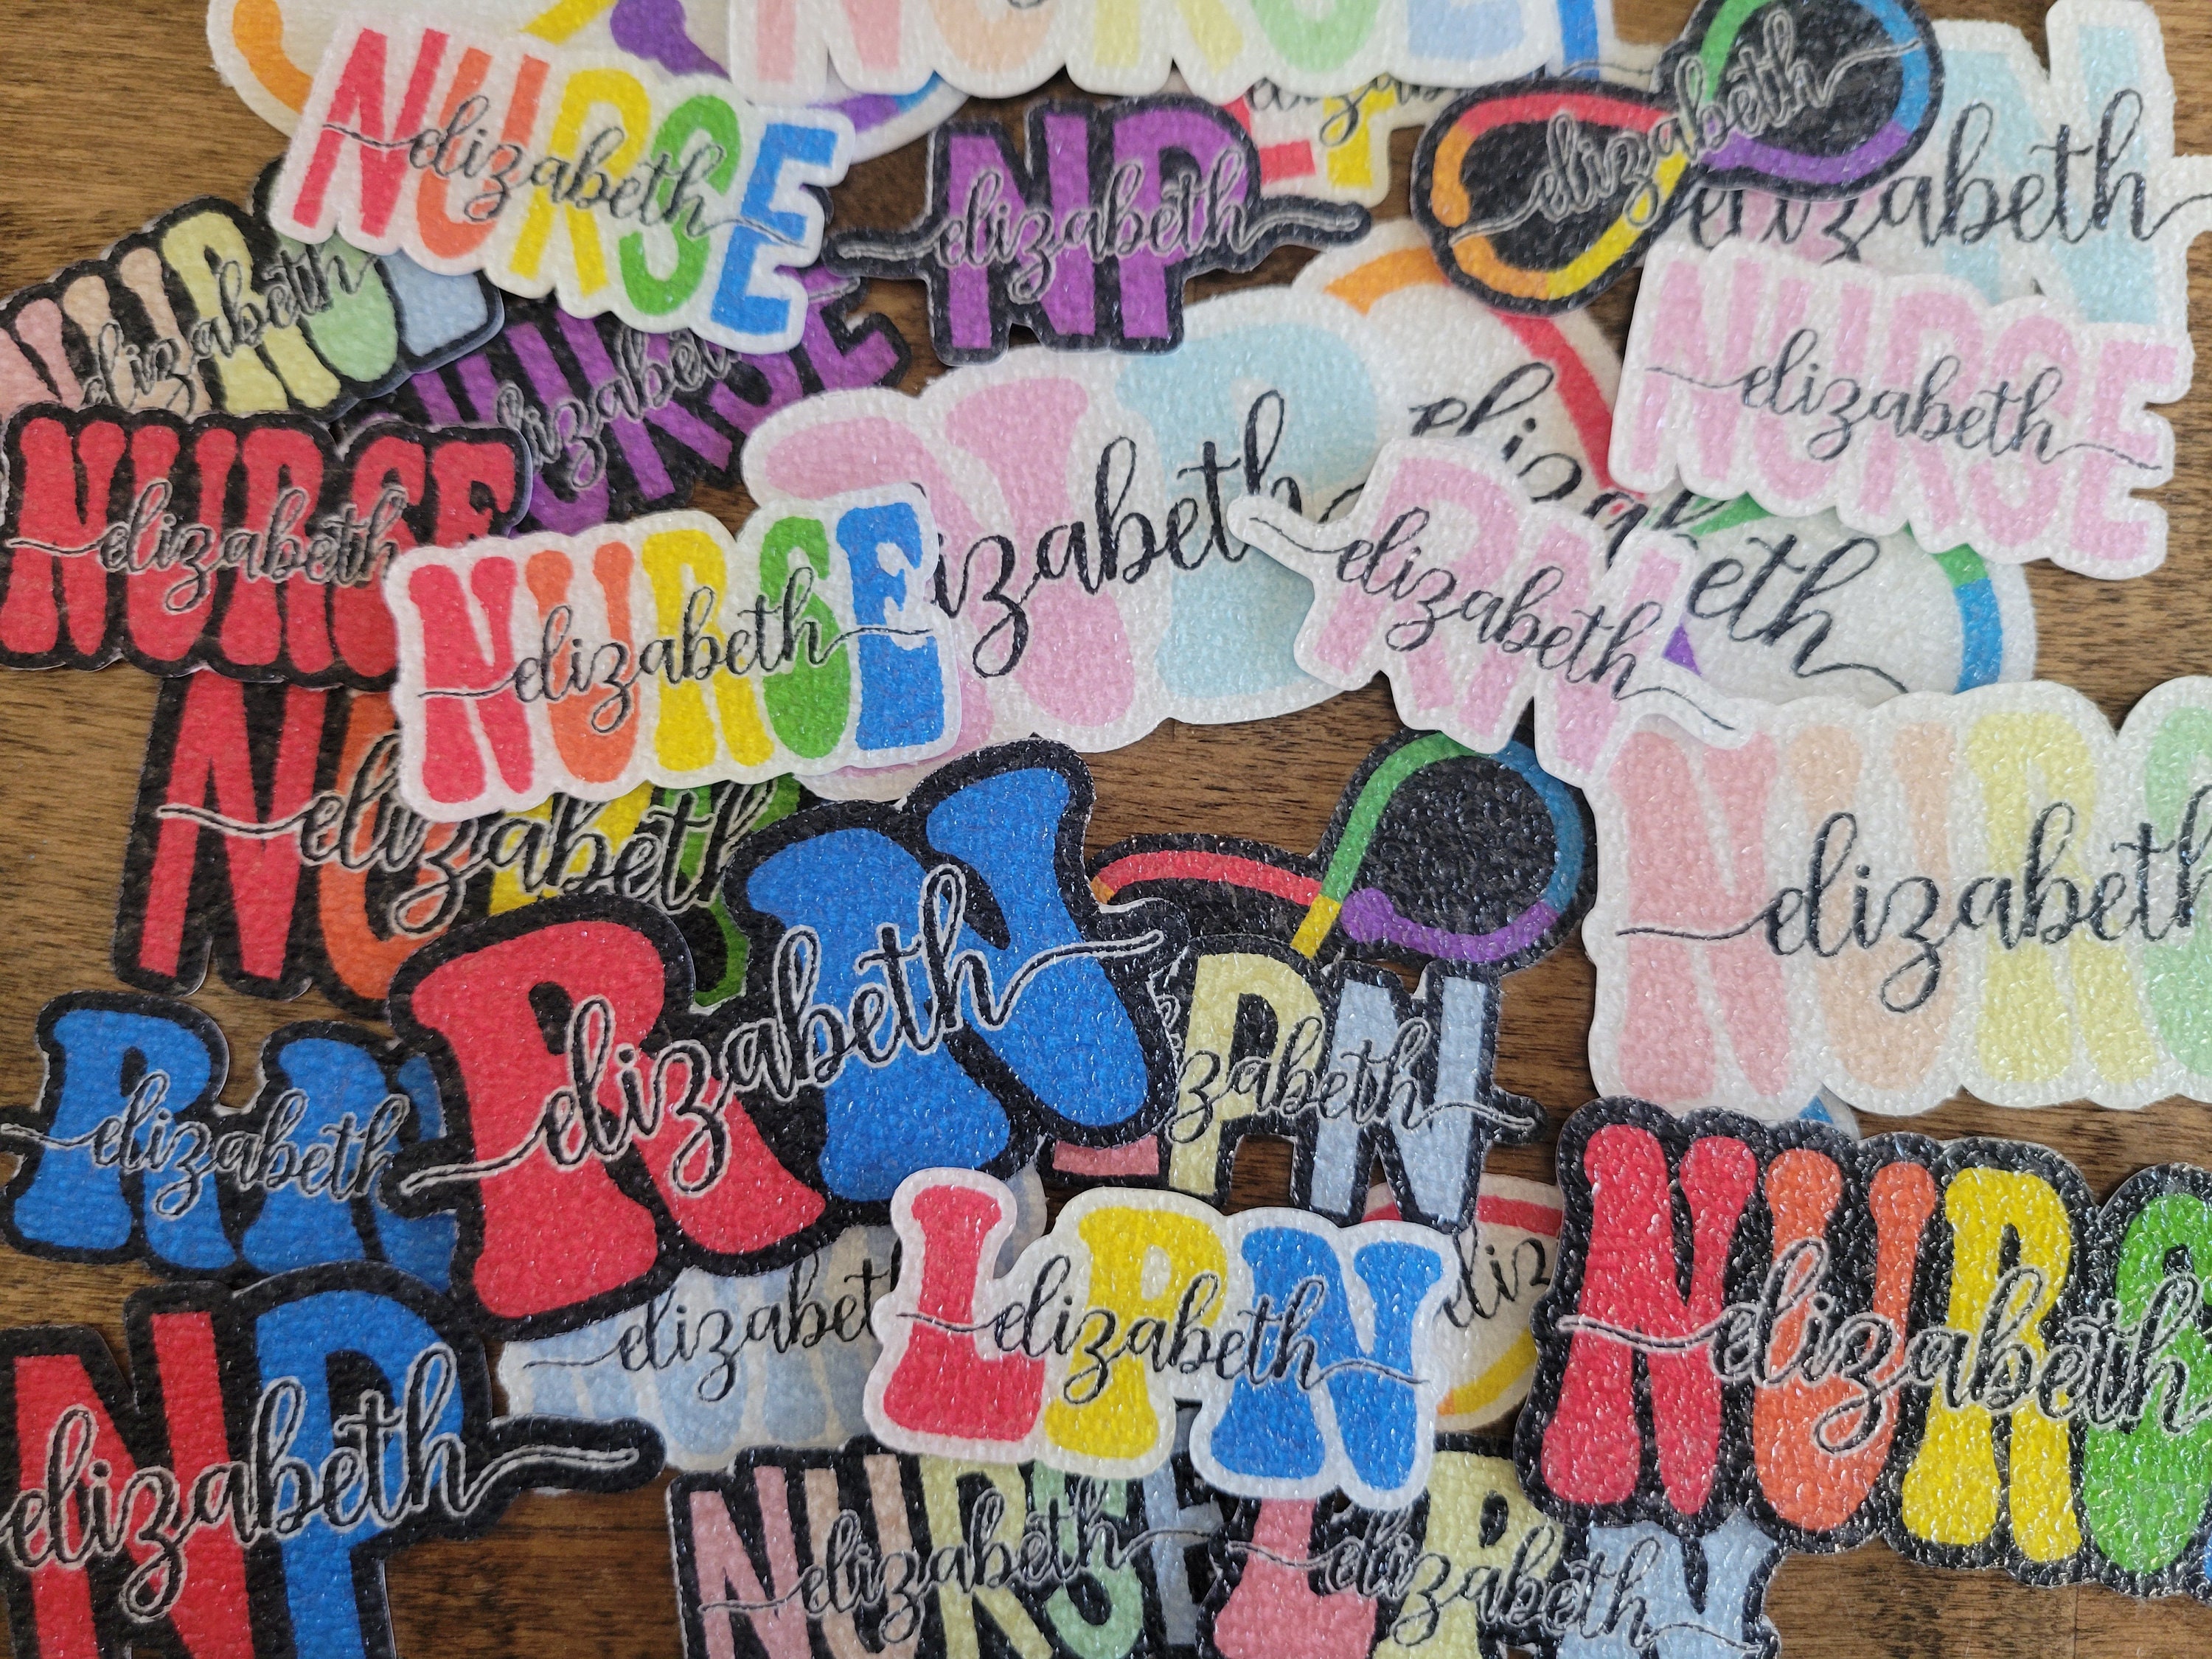 NURSE
elizabeth
NURSE
elizabeth
NP
elizabeth
elizabeth
N
elizabeth
NURSE
elizabeth
NURSE
elizabeth
NURSE
elizabeth
NURSE
elizabeth
NP
izabeth
eliz
eth
RN
elizabeth
NURSE
elizabeth
NURS
elizabeth
NURS
elizabeth
RN
elizabeth
RN
elizabeth
PN
zabeth
elizabeth
LPN
elizabeth
eliz
NURS
elizabeth
NP
elizabeth
NURSE
elizabeth
LPN
elizabeth